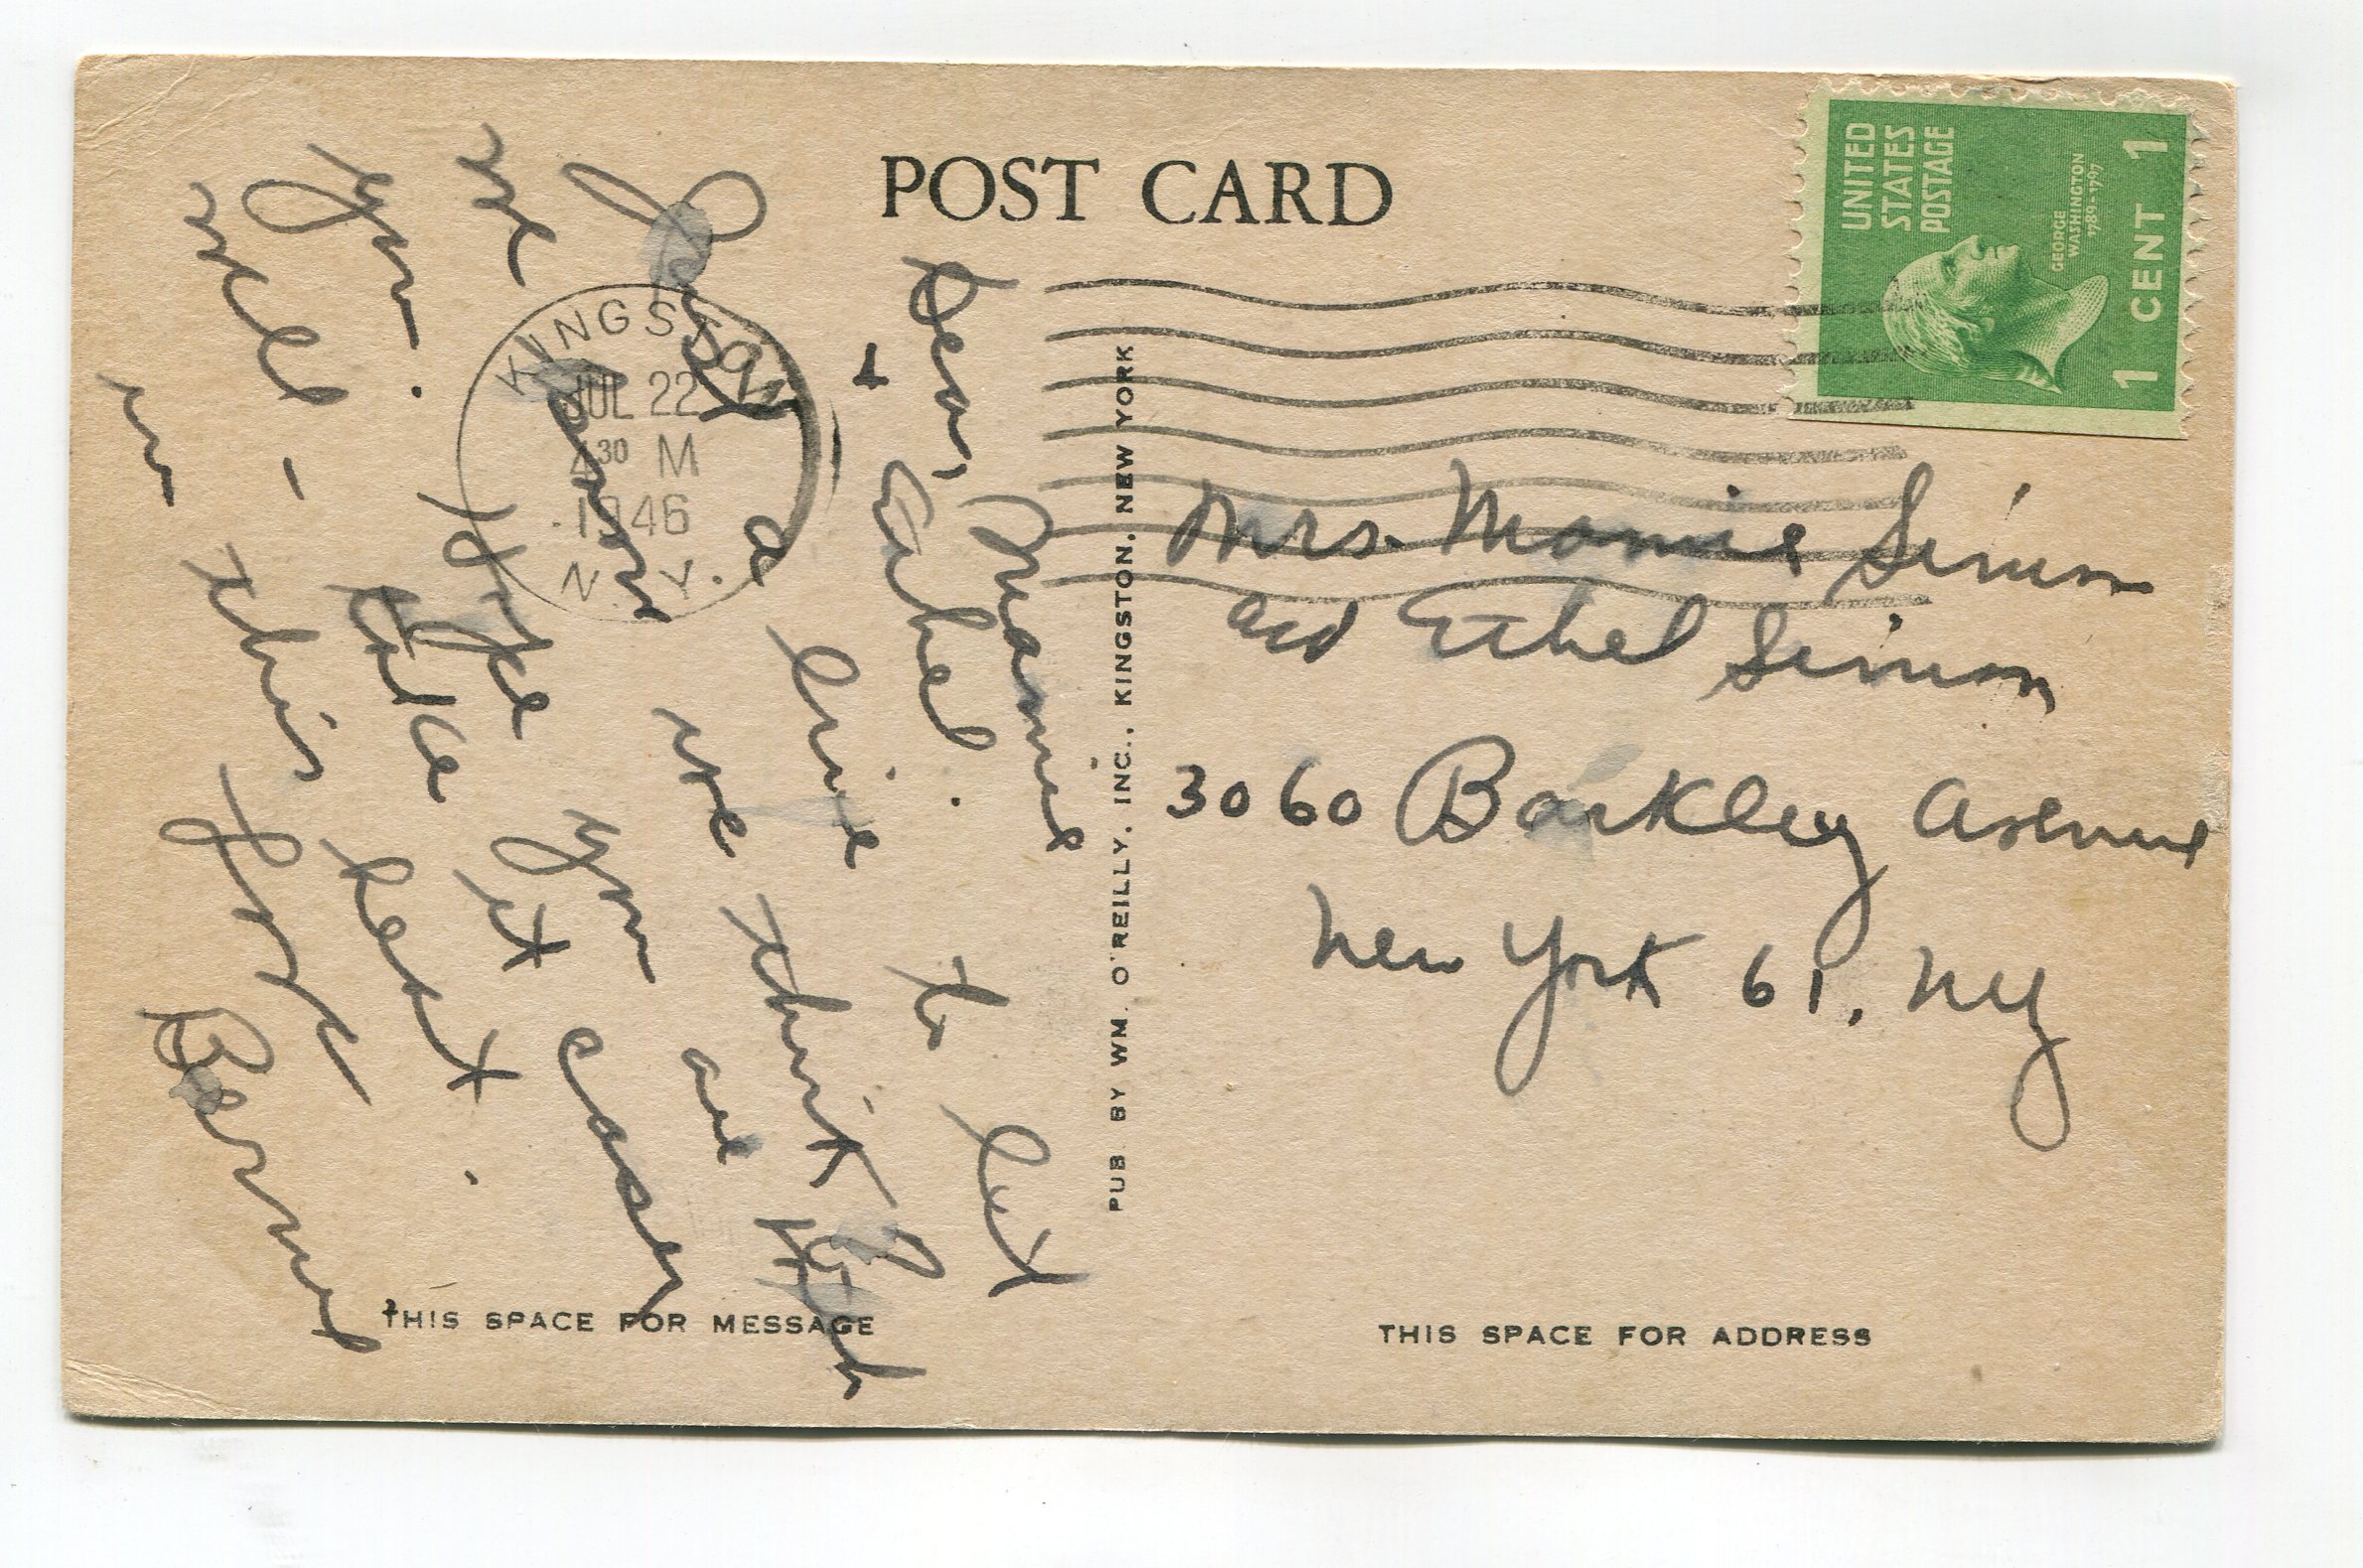 POST CARD
UNITED
STATES
POSTAGE
GEORGE
WASHINGTON
1789-1797
1 CENT 1
KINGSTON
JUL 22
4 30 M
1946
N.Y.
Dear, Mamie
+ Ethel.
Just a line to let
we know we think of
you. Hope you are both
well - take it easy
in this heat.
Love
Bernie
PUB. BY WM. O'REILLY, INC., KINGSTON, NEW YORK
Mrs. Mamie Simon
and Ethel Simon
3060 Barkley Avenue
New York 61, NY
THIS SPACE FOR MESSAGE
THIS SPACE FOR ADDRESS